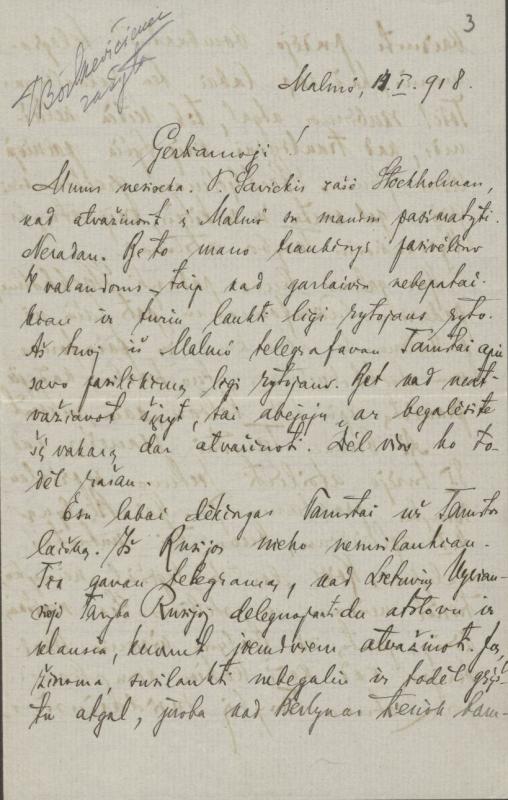 3
Borkevičienei
rašyta
Malmö, 14.I.918.
Gerbiamoji!
Mums nesiseka. P. Savickis rašė Stockholman,
kad atvažiuost į Malmö su manim pasimatyti.
Neradau. Be to mano traukinys pasivėlino
4 valandoms – taip kad garlaivin nebepatai-
kiau ir turiu laukti ligi rytojaus ryto.
Aš tuoj iš Malmö telegrafavau Tamstai apie
savo pasilikimą ligi rytojaus. Bet kad neat-
važiavot šįryt, tai abejoju, ar begalėsite
šį vakarą dar atvažiuoti. Dėl viso ko to-
dėl rašau.
Esu labai dėkingas Tamstai už Tamstos
laišką. Iš Rusijos nieko nesusilaukiau.
Tik gavau telegramą, kad Lietuvių Vyriau-
sioji Taryba Rusijoj du atstovu ir
klausia, kuomet jiemdviem atvažiuoti. Jų,
žinoma, susilaukti nebegaliu ir todėl grįž-
tu atgal, juoba kad Berlynas tiesiok bom-